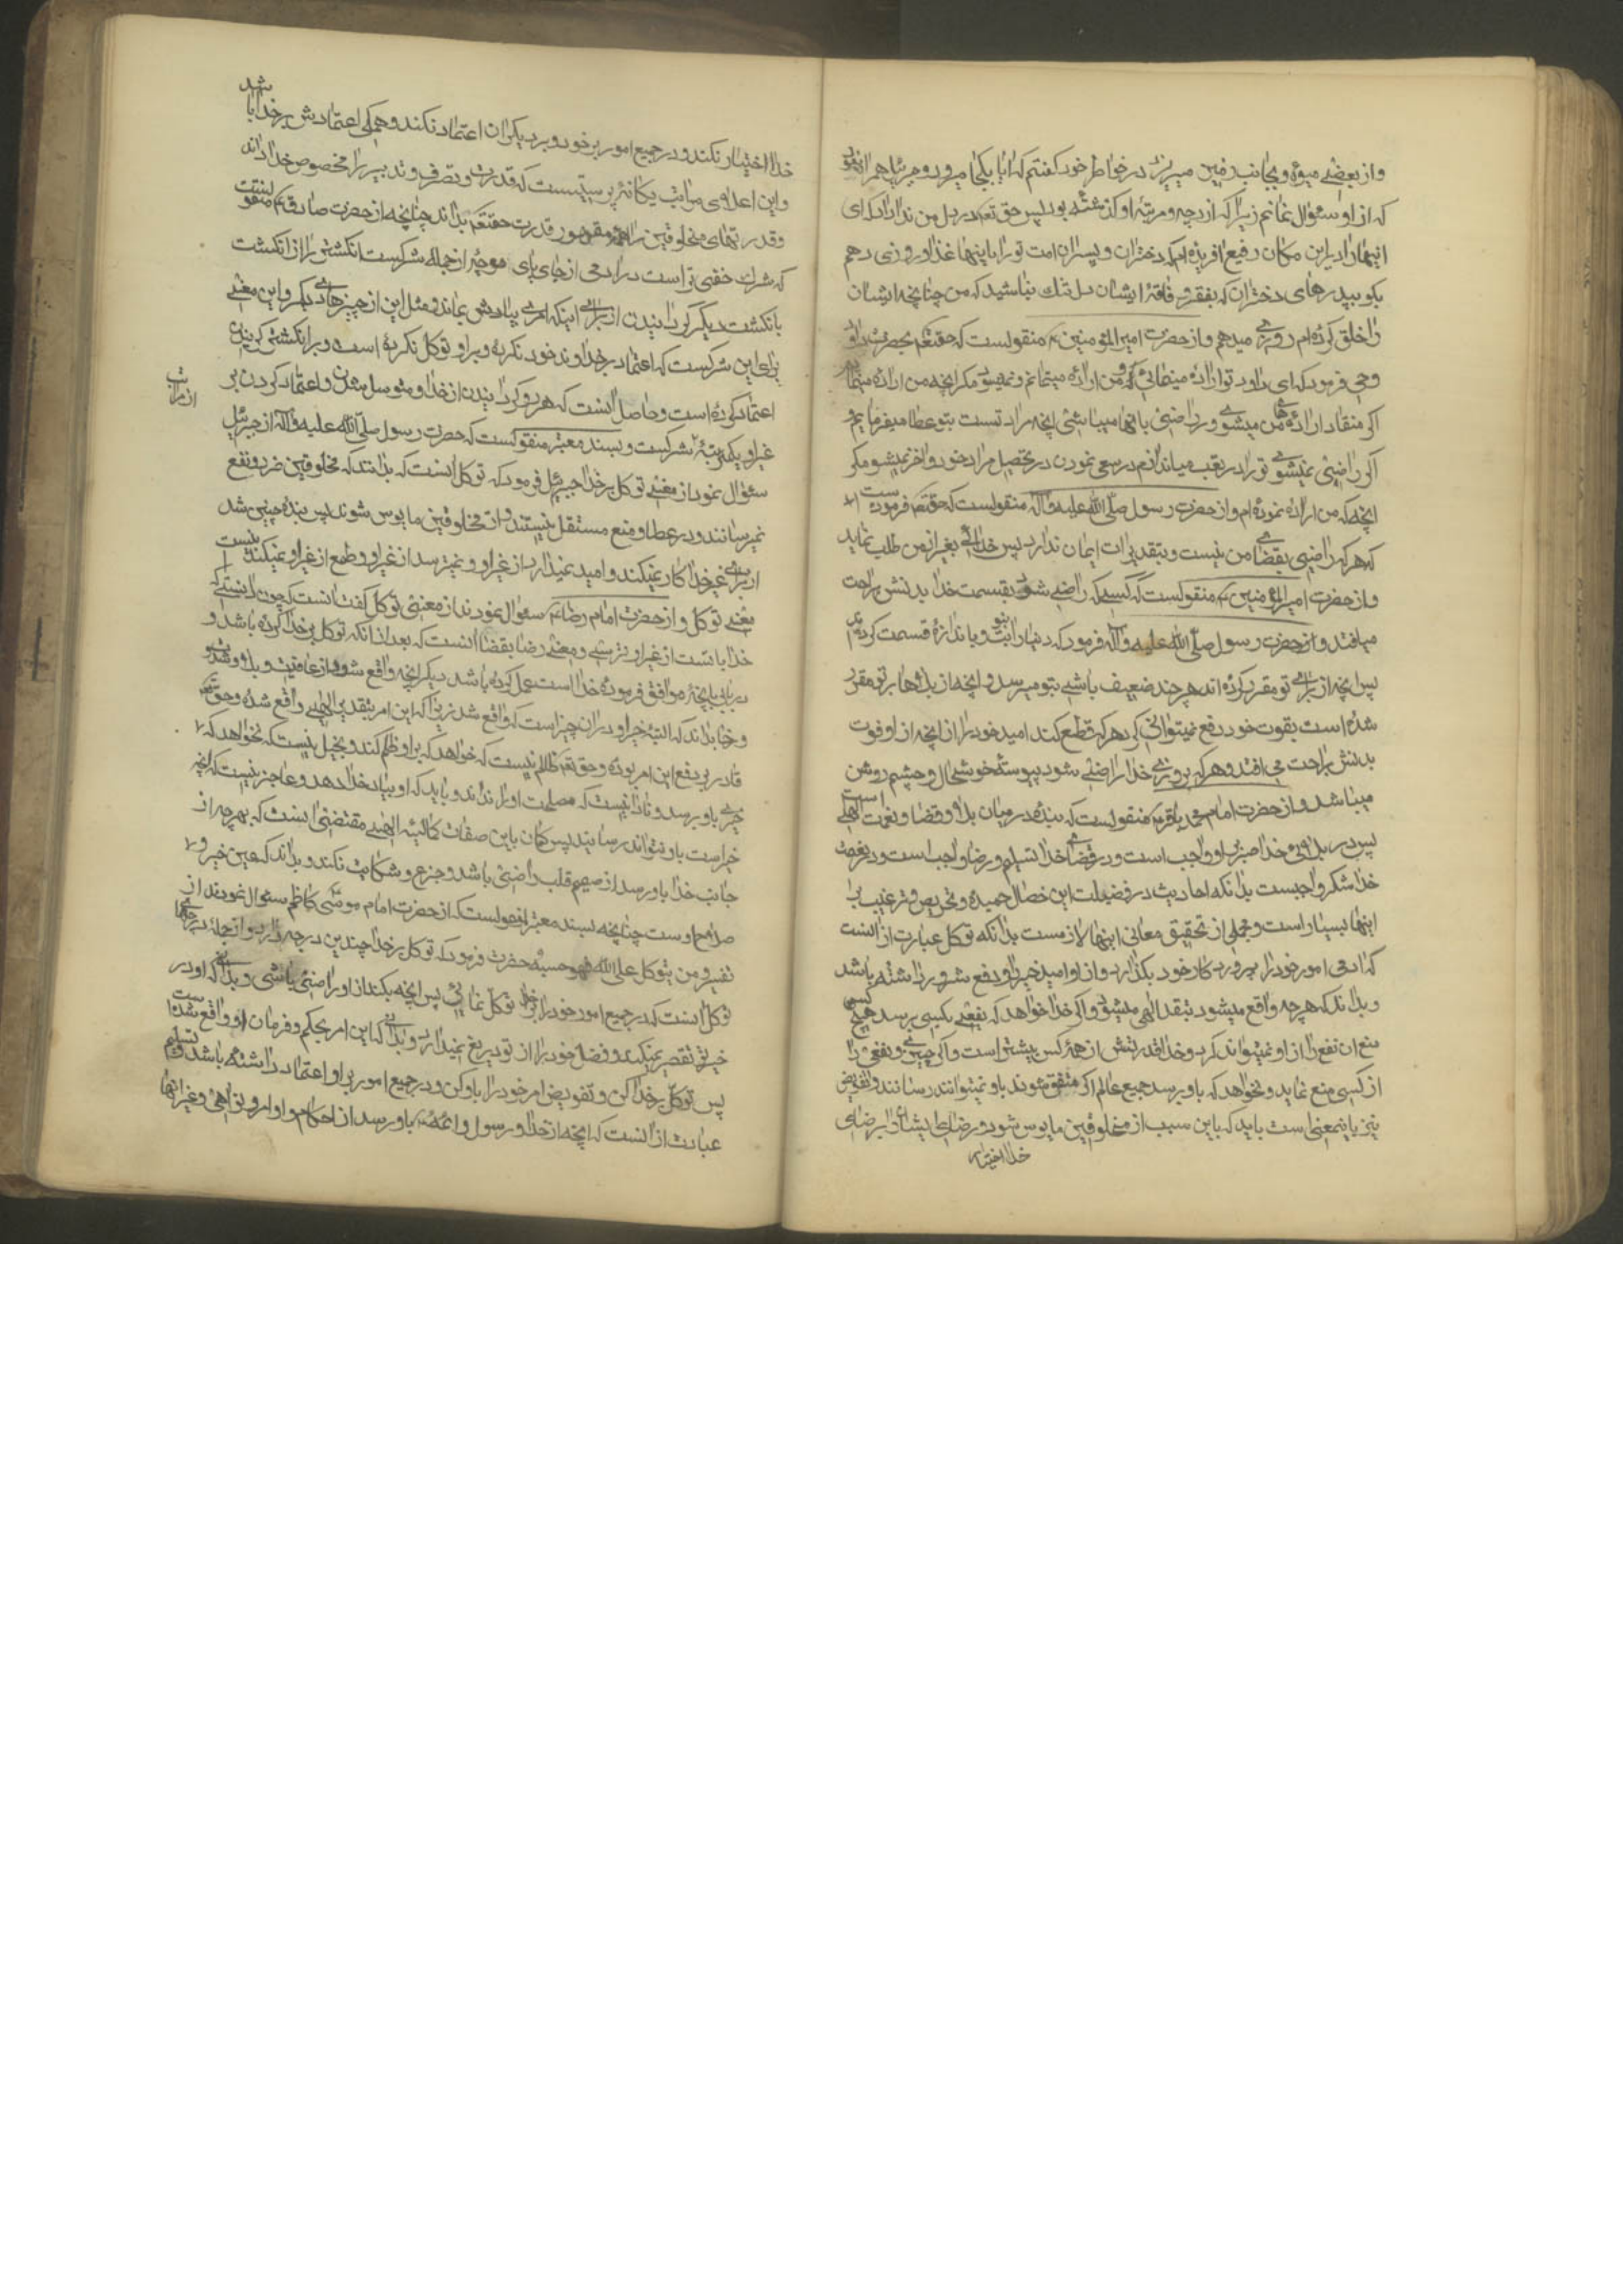 واز بعضی میوه و بجانب زمین میریزد در خواطر خود کفتم که ایا بکجا میرود و جبرئیل همراه نبود
که از او سئوال نمایم زیرا که از درجه و مرتبه او کذشته بودم پس حق تعه در دل من ندا داد که ای
اینهارا در این مکان رفیع افریده ام که دختران و پسران امت تو را باینها غذا و روزی دهم
بکو بپدرهای دختران که بفقر و فاقه ایشان دل تنك نباشید که من چنانچه ایشان
را خلق کرده ام روزی میدهم و از حضرت امیر المؤمنین ع منقولست که حقتعه بحضرت داود
وحی فرمود که ای داود تو اراده مینمائی و من اراده مینمایم و نمیشود مکر انچه من اراده مینمایم
اکر منقاد اراده های من میشوی و راضی بانها میباشی انچه مراد تست بتو عطا میفرمایم و
اکر راضی نمیشوی تو را در تعب میاندازم در سعی نمودن در تحصیل مراد خود و اخر نمیشود مکر
انچه که من اراده نموده ام و از حضرت رسول صلّی الله علیه واله منقولست که حقتعه فرموده است
که هر که راضی بقضای من نیست و بتقدیرات ایمان ندارد پس خدائی بغیر از من طلب نماید
و از حضرت امیر المؤمنین ع منقولست که کسی که راضی شود بقسمت خدا بدنش براحت
میافتد و از حضرت رسول صلّی الله علیه واله فرمود که دنیا را بتو و باندازه قسمت کرده اند
پس انچه از برای تو مقرر کرده اند هر چند ضعیف باشی بتو میرسد و انچه از بلاها بر تو مقرر
شده است بقوت خود دفع نمیتوانی کرد هر که قطع کند امید خود را از انچه از او فوت
بدنش براحت می افتد و هر که بروزی خدا راضی شود پیوسته خوشحال و چشم روشن
میباشد و از حضرت امام محمد باقر ع منقولست که بنده در میان بلا و قضا و نعمت الهی است
پس در بلای خدا صبر براو واجب است و در قضای خدا تسلیم و رضا واجب است و در نعمت
خدا شکر واجبست بدانکه احادیث در فضیلت این خصال حمیده و تحریص و ترغیب بر
اینها بسیار است و مجملی از تحقیق معانی اینها لازمست بدانکه توکل عبارت از انست
که ادمی امور خود را بپروردکار خود بکذارد و از او امید خیر و دفع شرور داشته باشد
و بداند که هر چه واقع میشود بتقدیر الهی میشود و اکر خدا خواهد که نفعی بکسی برسد هیچ کسی
منع ان نفع را از او نمیتواند کرد و خدا قدرتش از همه کس بیشتر است و اکر خیری و نفعی را
از کسی منع نماید و نخواهد که باو برسد جمیع عالم اکر متفق شوند باو نمیتوانند رسانند و تفویض
نیز باینمعنی است باید که باین سبب از مخلوقین مایوس شود و رضای ایشان را بر رضای
خدا اختیار
خدا اختیار نکند و در جمیع امور بر خود و بر دیکران اعتماد نکند و همکی اعتمادش بر خدا باشد
و این اعلای مراتب یکانه پرستیست که قدرت و تصرف و تدبیر را مخصوص خدا داند
و قدرتهای مخلوقین را همه مقهور قدرت حقتعه بداند چنانچه از حضرت صادق ع منقولست
که شرك خفی تر است در ادمی از جای پای مورچه از جمله شرکست انکشتر را از انکشت
بانکشت دیکر کردانیدن از برای اینکه امری بیادش بماند و مثل این از چیزهای دیکر و این معنی
برای این شرکست که اعتماد بر خداوند خود نکرده و بر او توکل نکرده است و بر انکشتر کردانیدن
اعتماد کرده است و حاصل انست که هر رو کردانیدن از خدا و متوسل شدن و اعتماد کردن بر
غیر او یکمرتبه شرکست و بسند معتبر منقولست که حضرت رسول صلّی الله علیه واله از جبرئیل
از مراتب
سئوال نمود از معنی توکل بر خدا جبرئیل فرمود که توکل انست که بدانند که مخلوقین ضرر و نفع
نمیرسانند و در عطا و منع مستقل نیستند و از مخلوقین مایوس شوند پس بنده چنین شد
از برای غیر خدا کار نمیکند و امید نمیدارد از غیر او و نمیترسد از غیر او و طمع از غیر او نمیکند اینست
معنی توکل و از حضرت امام رضا ع سئوال نمودند از معنی توکل کفت انست که چون دانستی که
خدا با تست از غیر او نترسی و معنی رضا بقضا انست که بعد از انکه توکل بر خدا کرده باشد و
در باب انچه موافق فرموده خدا است عمل کرده باشد دیکر انچه واقع شود از عافیت و بلا و شدت
و رخا بداند که البته خیر او در ان چیز است که واقع شد زیرا که این امر بتقدیر الهی واقع شده و حق تعه
قادر بر دفع این امر بوده و حق تعه ظالم نیست که خواهد که بر او ظلم کند و بخیل نیست که نخواهد که
خیری باو برسد و نادان نیست که مصلحت او را نداند و باید که او بیاد خدا دهد و عاجز نیست که انچه
خیر است باو نتواند رسانید پس کمان باین صفات کمالیه الهی مقتضی انست که بهر چه از
جانب خدا باو رسد از صمیم قلب راضی باشد و جزع و شکایت نکند و بداند که عین خیر و
صلاح اوست چنانچه بسند معتبر منقولست که از حضرت امام موسی کاظم ع سئوال نمودند از
تفسیر و من یتوکل علی الله فهو حسبه حضرت فرمود که توکل بر خدا چندین درجه دارد و از جمله درجها
توکل انست که در جمیع امور خود را بر خدا توکل نمائی پس انچه بکند از او راضی باشی و بدانی که او در
خیر تو تقصیر نمیکند و فضل خود را از تو دریغ نمیدارد و بدانی که این امر بحکم و فرمان او واقع شده است
پس توکل بر خدا کن و تفویض امر خود را باو کن و در جمیع امور بر او اعتماد داشته باش و تسلیم
عبارت از انست که انچه از خدا و رسول و ائمه ع باو رسد از احکام و اوامر و نواهی و غیر انها